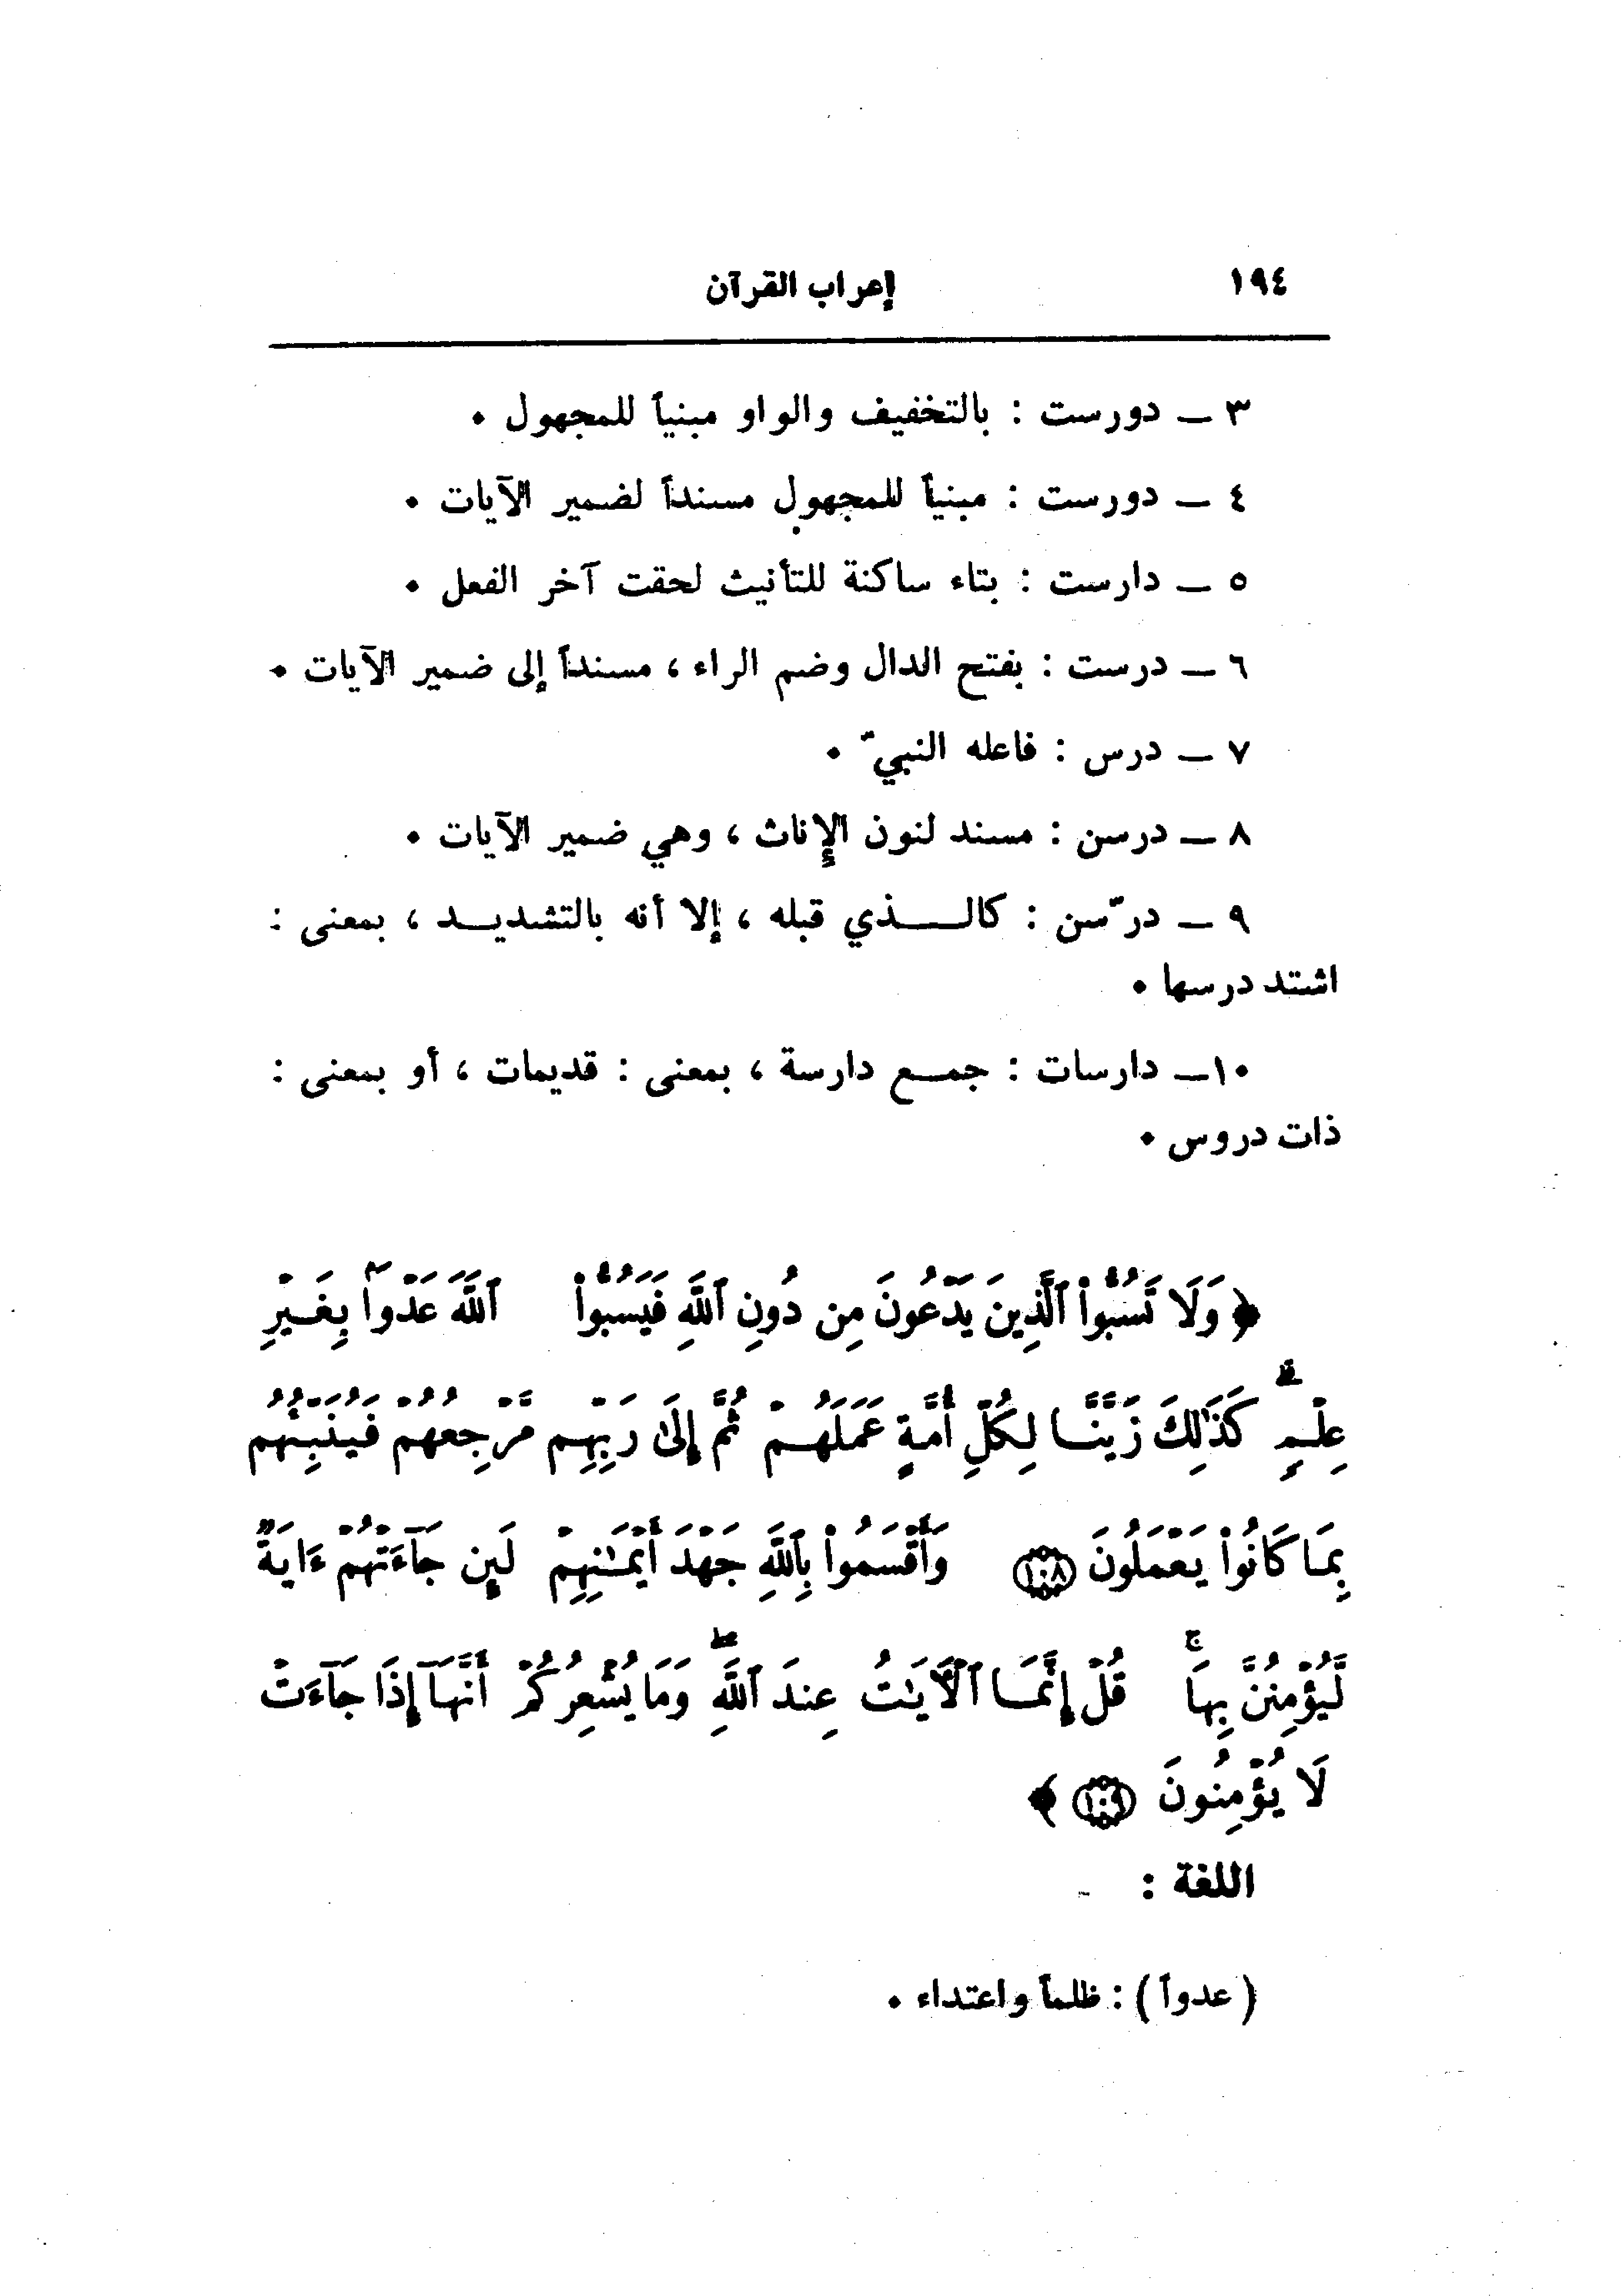 ١٩٤ إعراب القرآن
٣ ـ دورست : بالتخفيف والواو مبنياً للمجهول .
٤ ـ دورست : مبنياً للمجهول مسنداً لضمير الآيات .
٥ ـ دارست : بتاء ساكنة للتأنيث لحقت آخر الفعل .
٦ ـ درست : بفتح الدال وضم الراء ، مسنداً إلى ضمير الآيات .
٧ ـ درس : فاعله النبيّ .
٨ ـ درسن : مسند لنون الإناث ، وهي ضمير الآيات .
٩ ـ درّسن : كالـــذي قبله ، إلا أنه بالتشديـد ، بمعنى :
اشتد درسها .
١٠ـ دارسات : جمـع دارسة ، بمعنى : قديمات ، أو بمعنى :
ذات دروس .
﴿ وَلَا تَسُبُّوا۟ ٱلَّذِينَ يَدْعُونَ مِن دُونِ ٱللَّهِ فَيَسُبُّوا۟ ٱللَّهَ عَدْوًۢا بِغَيْرِ
عِلْمٍۗ كَذَٰلِكَ زَيَّنَّا لِكُلِّ أُمَّةٍ عَمَلَهُمْ ثُمَّ إِلَىٰ رَبِّهِم مَّرْجِعُهُمْ فَيُنَبِّئُهُم
بِمَا كَانُوا۟ يَعْمَلُونَ ١٠٨ وَأَقْسَمُوا۟ بِٱللَّهِ جَهْدَ أَيْمَٰنِهِمْ لَئِن جَآءَتْهُمْ ءَايَةٌ
لَّيُؤْمِنُنَّ بِهَاۚ قُلْ إِنَّمَا ٱلْـَٔايَٰتُ عِندَ ٱللَّهِۖ وَمَا يُشْعِرُكُمْ أَنَّهَآ إِذَا جَآءَتْ
لَا يُؤْمِنُونَ ١٠٩ ﴾
اللغة :
( عدواً ) : ظلماً واعتداء .